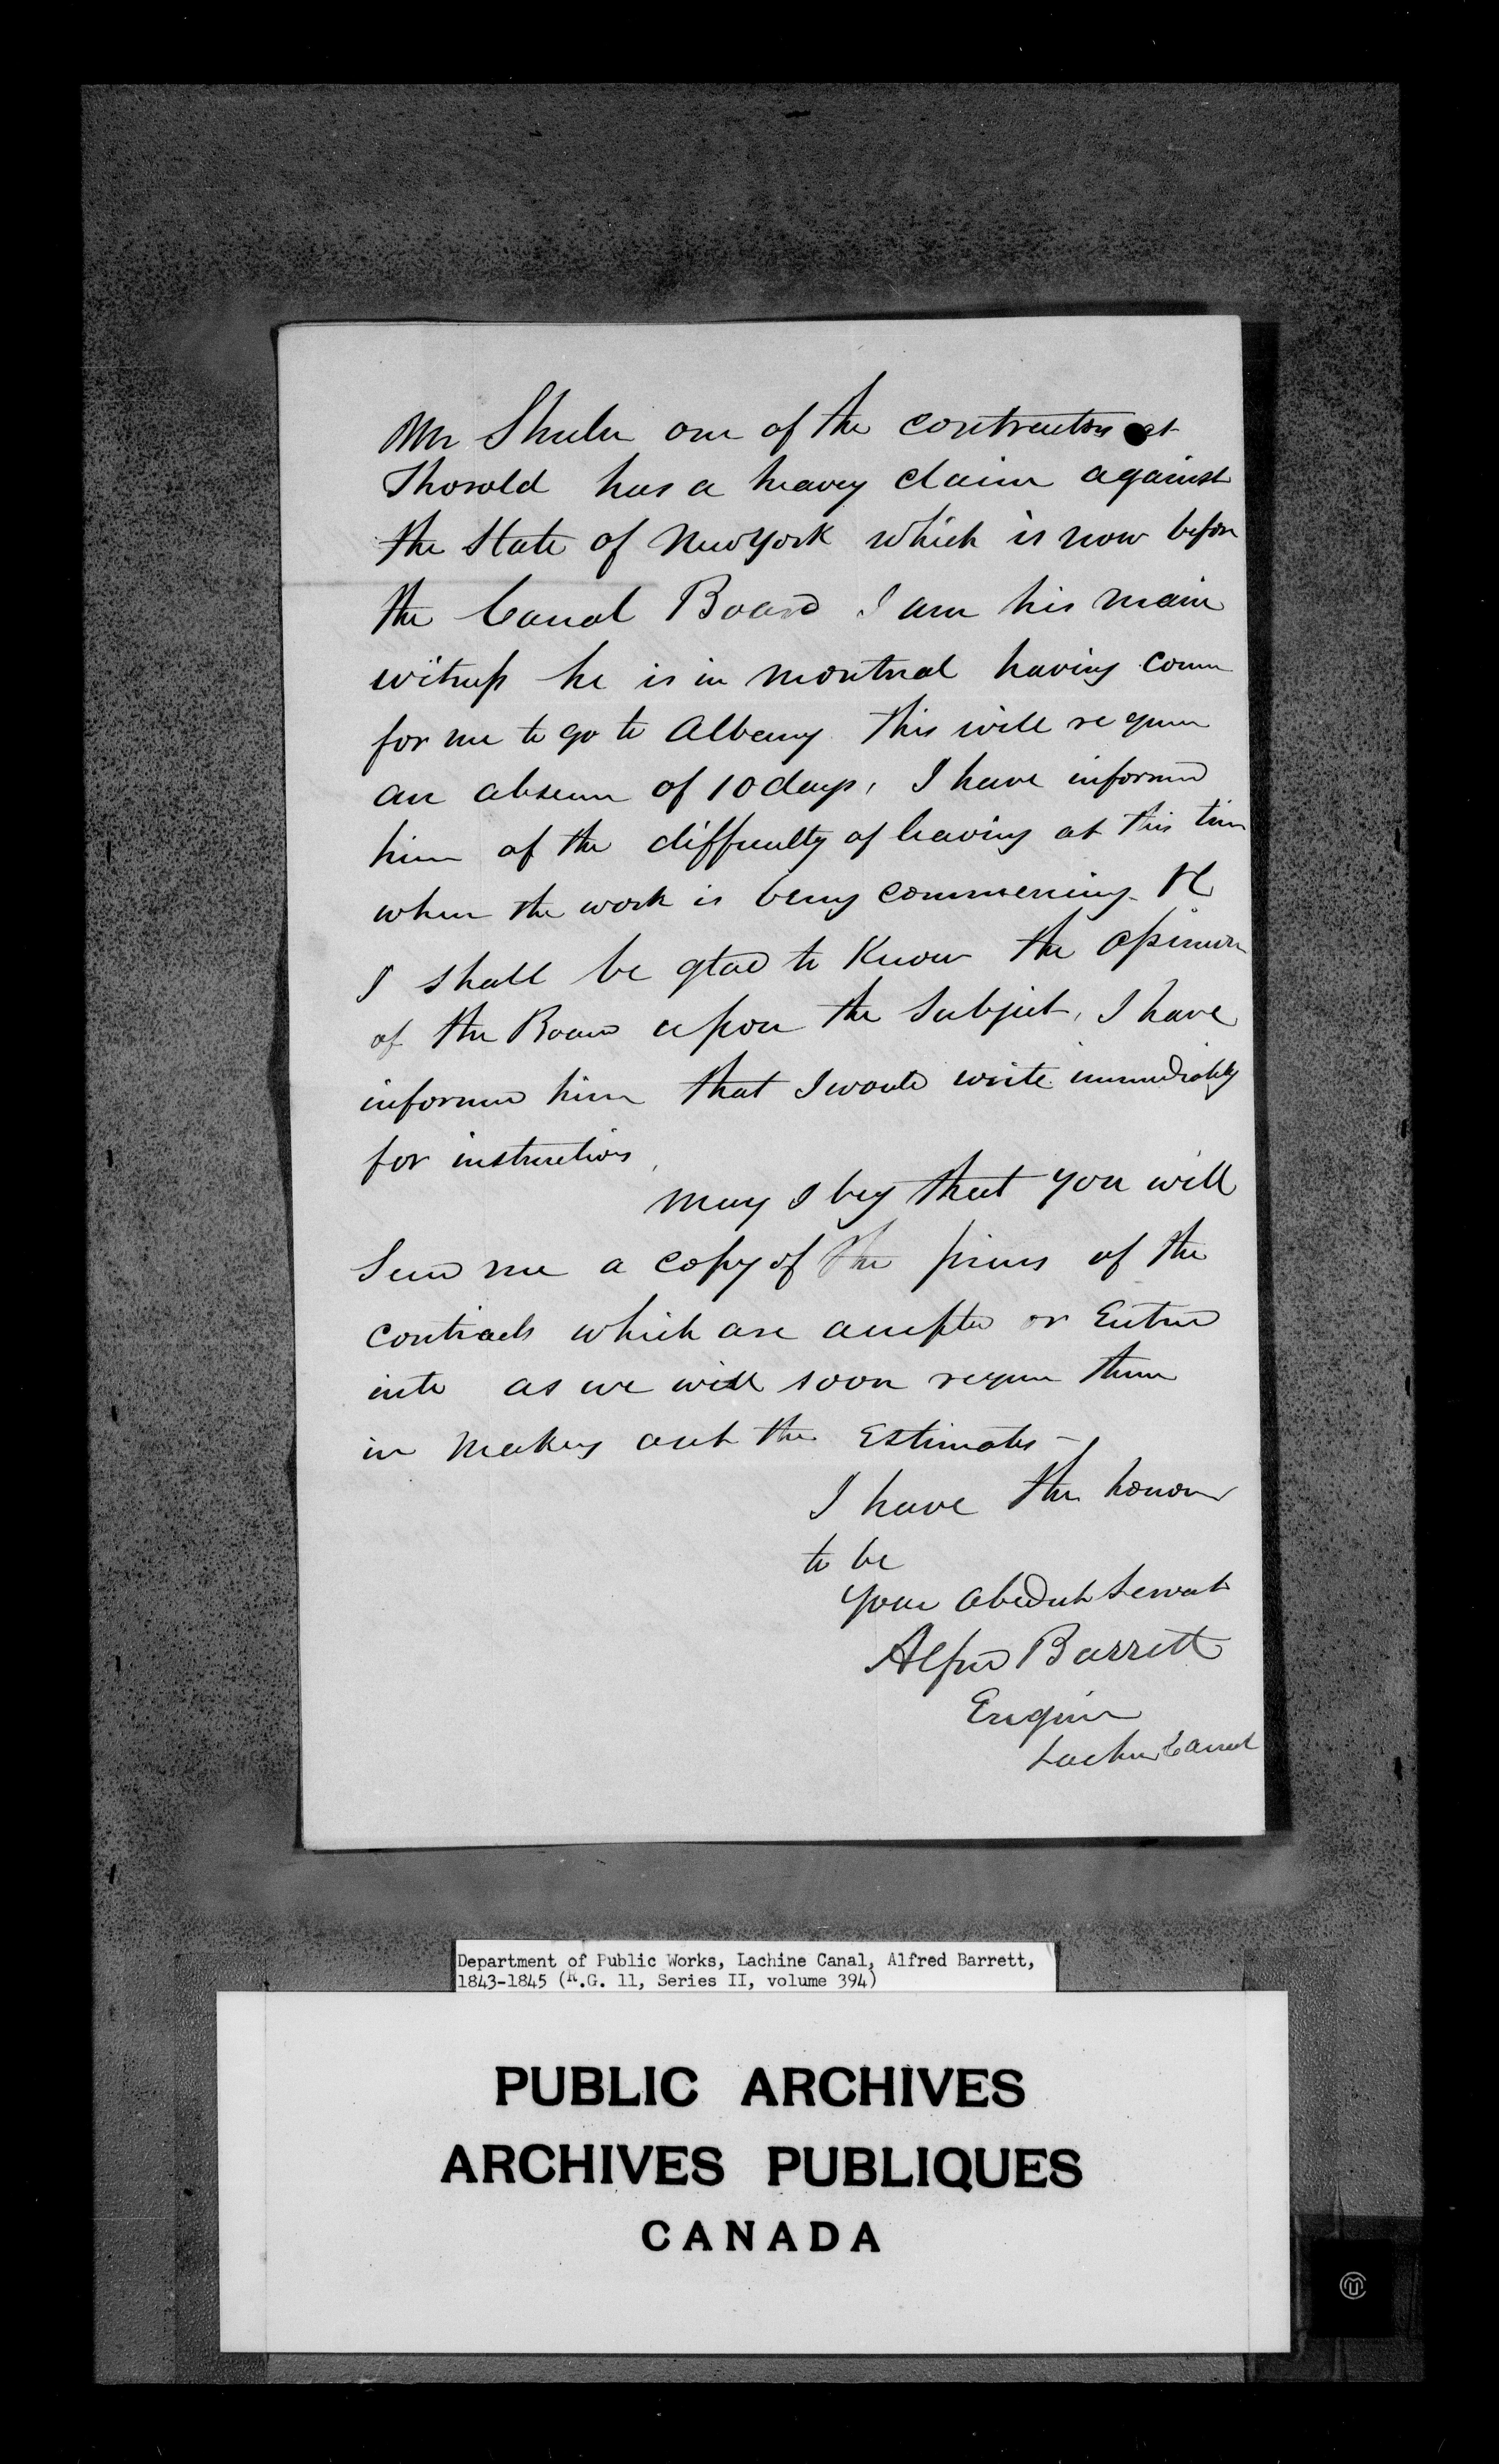 Mr Shuler one of the contractors at
Thorold has a heavy claim against
the State of New York which is now before
the Canal Board I am his main
witness he is in Montreal having come
for me to go to Albany this will require
an absence of 10 days, I have informed
him of the difficulty of leaving at this time
when the work is being commencing &c
I shall be glad to know the opinion
of the Board upon the Subject, I have
informed him that I would write immediately
for instructions
May I beg that you will
Send me a copy of the prices of the
contracts which are accepted or Entered
into as we will soon require them
in making out the Estimates -
I have the honour
to be
your obedient Servant
Alfred Barrett
Engineer
Lachine Canal
Department of Public Works, Lachine Canal, Alfred Barrett,
1843-1845 (R.G. 11, Series II, volume 394)
PUBLIC ARCHIVES
ARCHIVES PUBLIQUES
CANADA